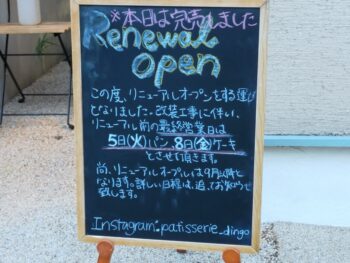 ※本日は完売しました
Renewal
open
この度、リニューアルオープンをする運び
となりました。改装工事に伴い、
リニューアル前の最終営業日は
5日(火)パン、8日(金)ケーキ
とさせて頂きます。
尚、リニューアルオープンは9月以降と
なります。詳しい日程は、追ってお知らせ
致します。
Instagram:patisserie_dingo